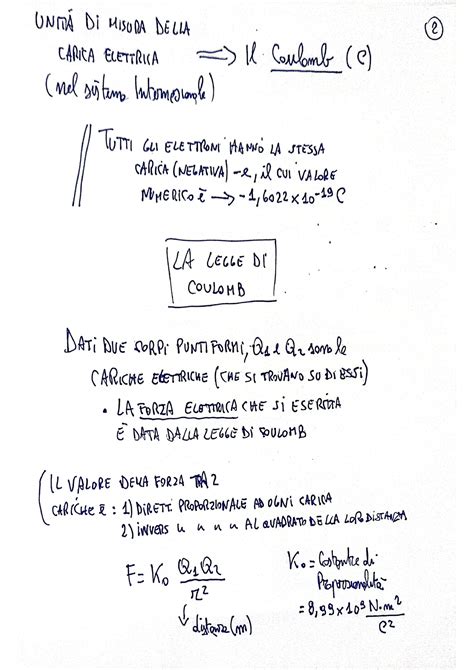 UNITÁ DI MISURA DELLA
CARICA ELETTRICA => Il Coulomb (C)
(nel sistema Internazionale)
2
TUTTI GLI ELETTRONI HANNO LA STESSA
CARICA (NEGATIVA) -e, il cui VALORE
NUMERICO È -> -1,6022 x 10^-19 C
LA LEGGE DI
COULOMB
DATI DUE CORPI PUNTIFORMI, Q1 e Q2 sono le
CARICHE ELETTRICHE (CHE SI TROVANO SU DI ESSI)
• LA FORZA ELETTRICA CHE SI ESERCITA
È DATA DALLA LEGGE DI COULOMB
(IL VALORE DELLA FORZA TRA 2
CARICHE È: 1) DIRETT. PROPORZIONALE AD OGNI CARICA
2) INVERS " " " " AL QUADRATO DELLA LORO DISTANZA
F = K0 Q1Q2/r^2
distanza (m)
K0 = Costante di
Proporzionalità
= 8,99 x 10^9 N·m^2/C^2